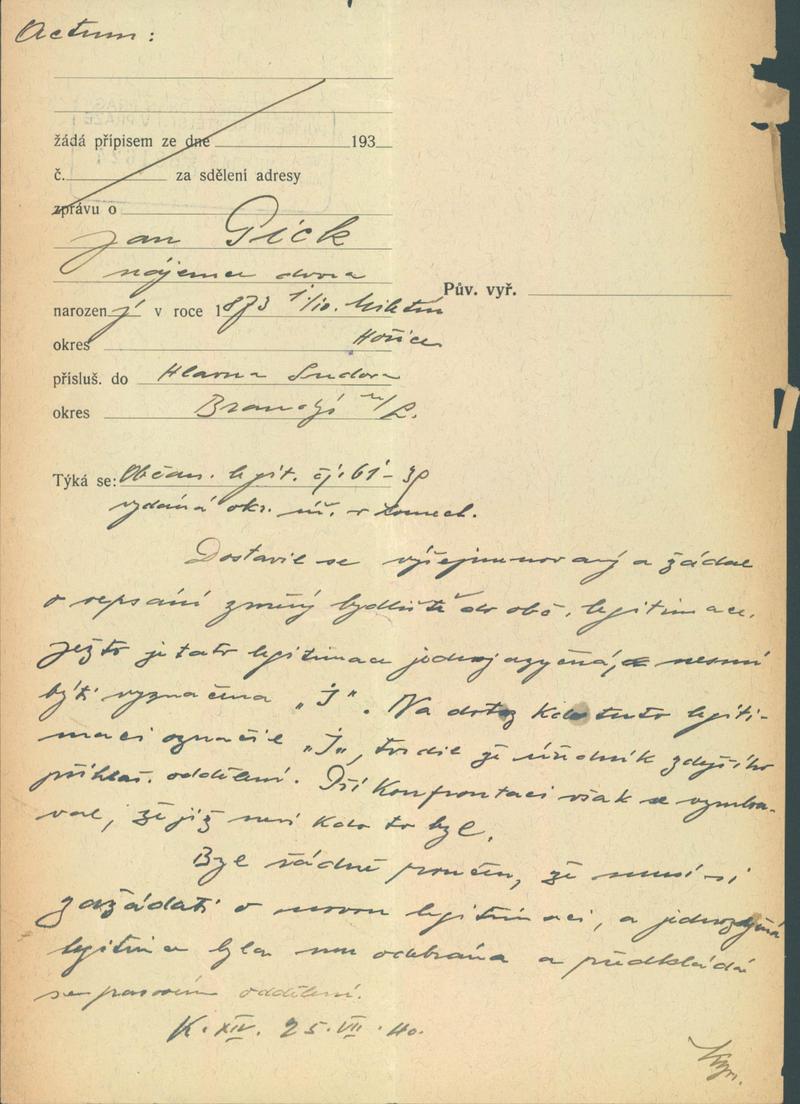 Actum:
žádá přípisem ze dne 193
č. za sdělení adresy
zprávu o
Jan Gick
nájemce dvora
narozený v roce 1873 1/10. Miletín
Pův. vyř.
okres Hořice
přísluš. do Hlavna Sudova
okres Brandýs n/L.
Týká se: Občan. legit. čj. 61-39
vydaná okr. úř. v Lounech.
Dostavil se výšejmenovaný a žádal
o vepsání změny bydliště do obč. legitimace.
Ježto je tato legitimace jednojazyčná, a nesmí
býti vyznačena „J". Na dotaz kdo tuto legiti-
maci označil „J", tvrdil že úředník zdejšího
přihlaš. oddělení. Při konfrontaci však se vymlou-
val, že již neví kdo to byl.
Byl řádně poučen, že musí si
zažádati o novou legitimaci, a jednojazyčná
legitimace byla mu odebrána a předkládá
se pasovním oddělení.
K. XIV. 25. VII. 40.